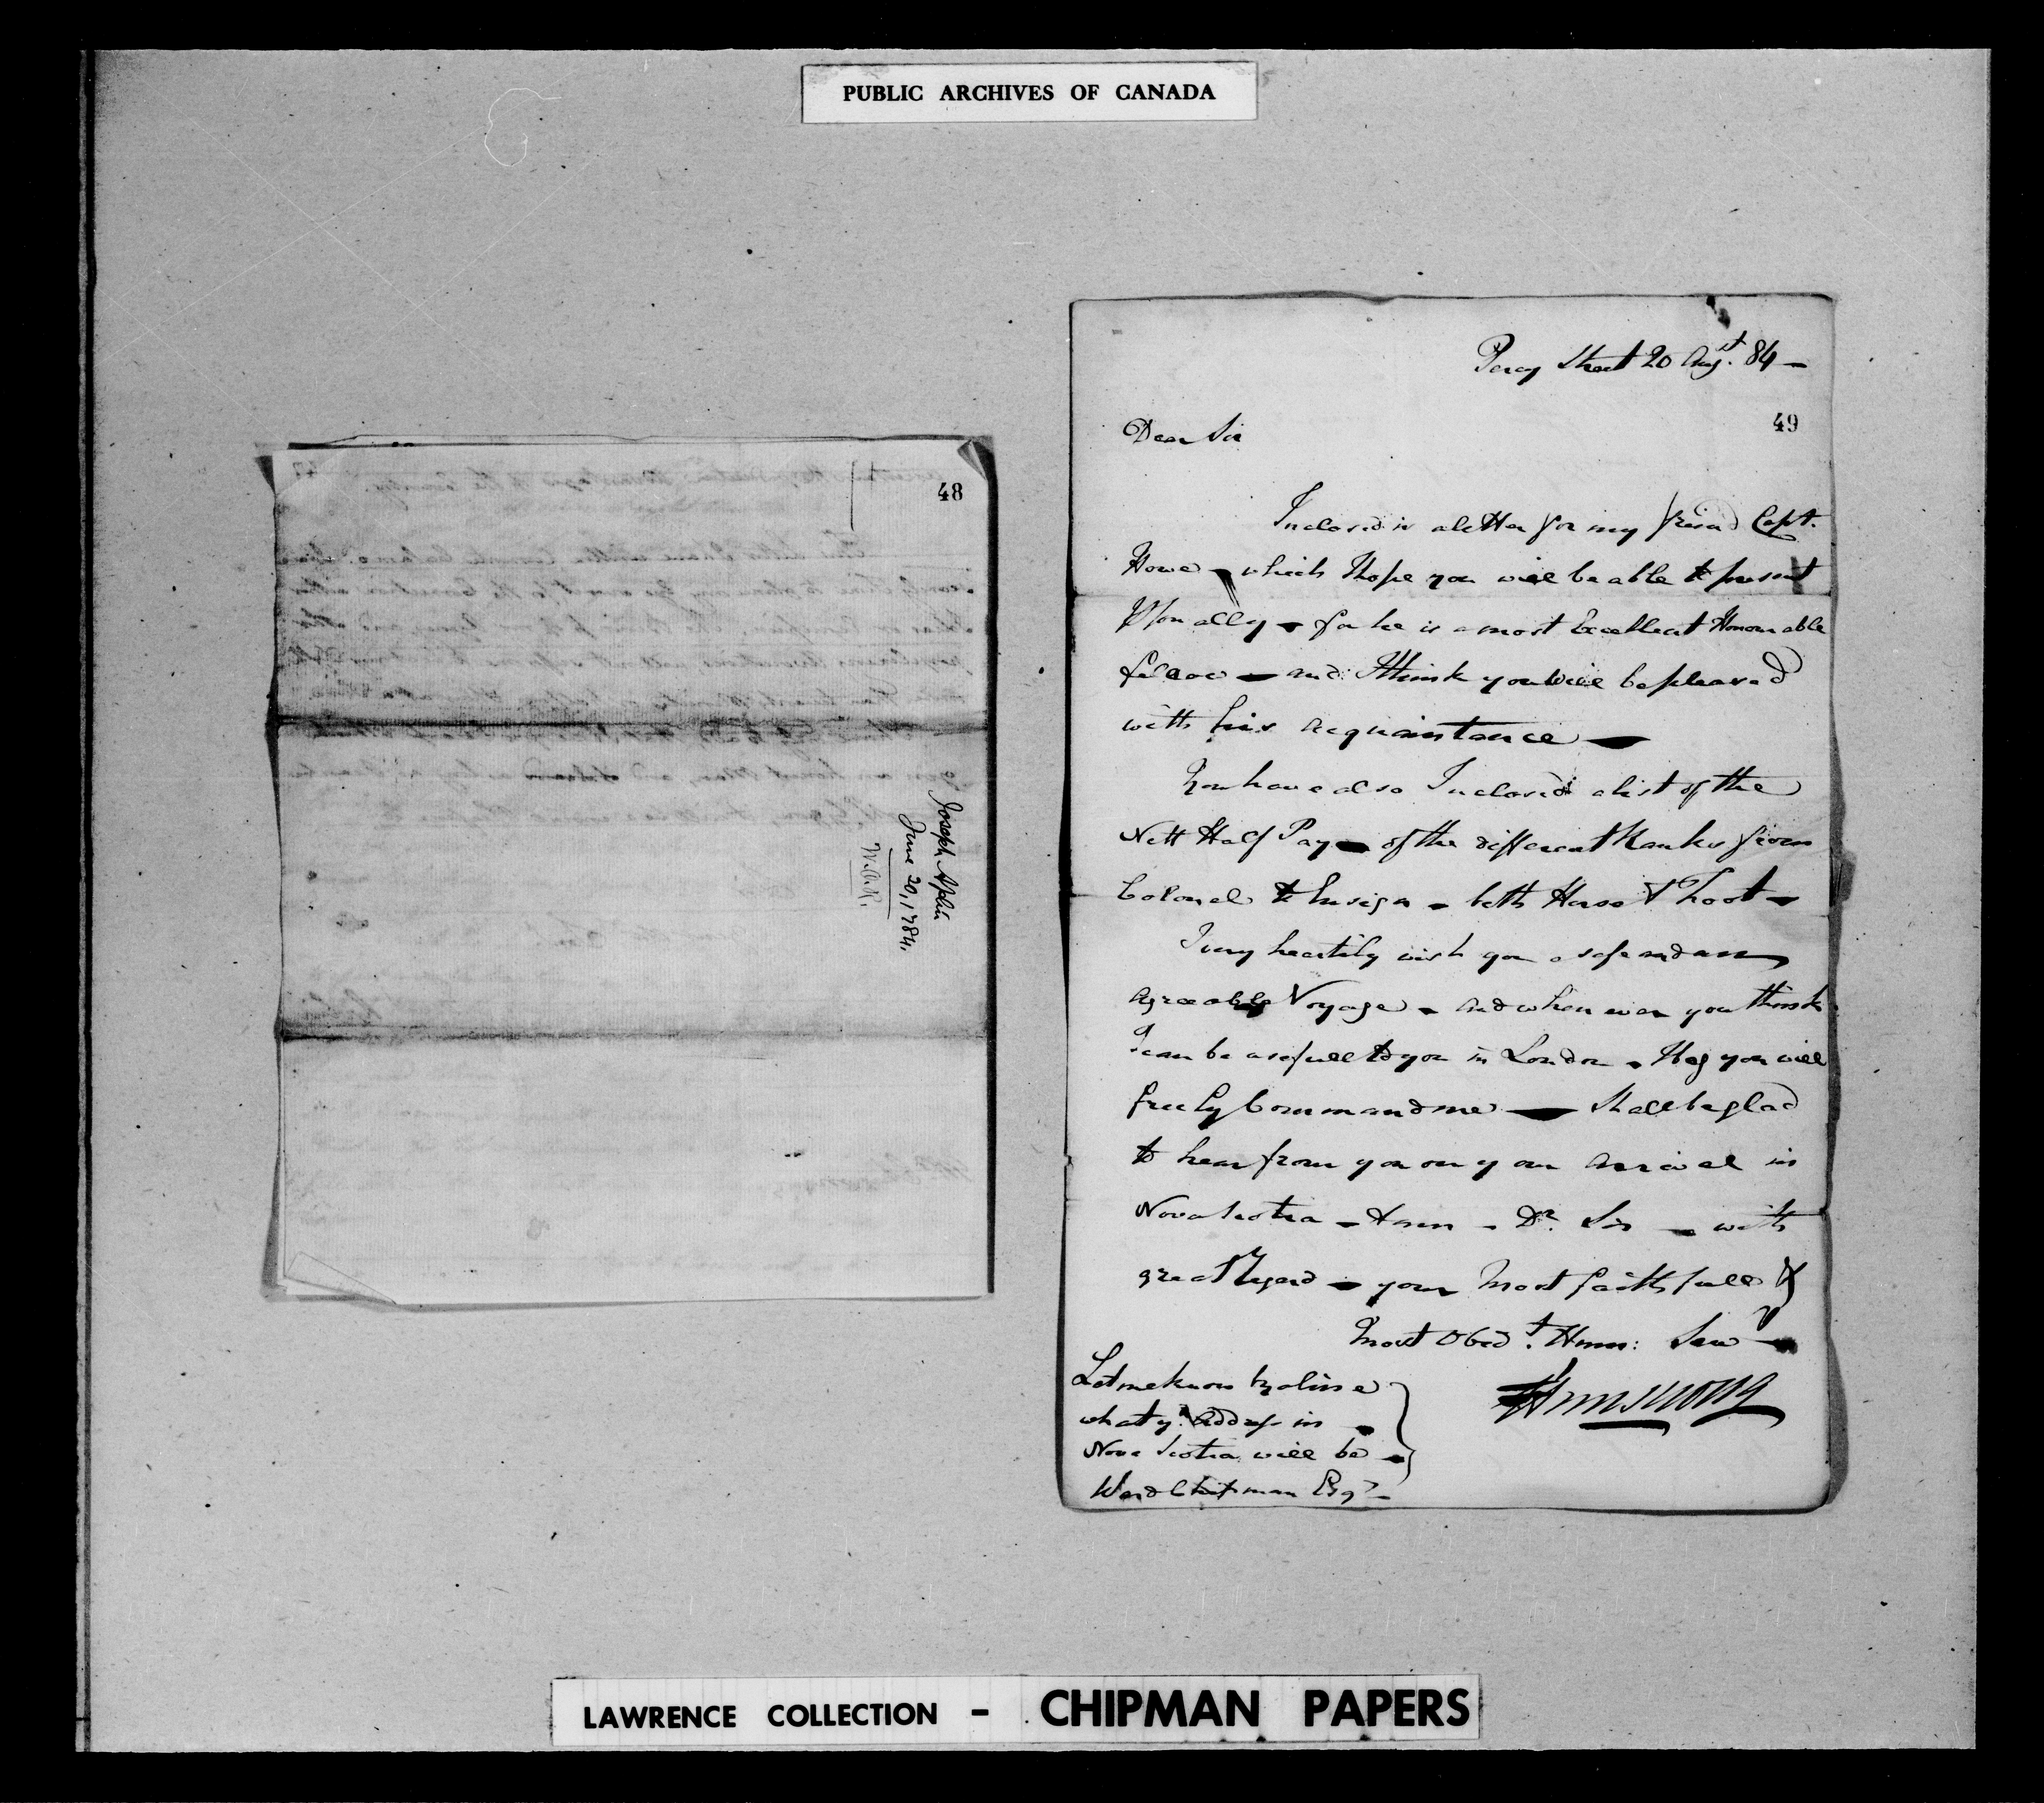 PUBLIC ARCHIVES OF CANADA
48
Joseph Aplin
June 20, 1784.
Percy Street 20 Augst. 84 —
49
Dear Sir
Inclosed is a letter for my friend Capt.
Howe — which I hope you will be able to present
Psonally — for he is a most Excellent Honourable
fellow — and I think you will be pleased
with his acquaintance —
You have also Inclosed a list of the
Nett Half Pay — of the different Ranks from
Colonel to Ensign — both Horse & Foot —
I very heartily wish you a safe and an
agreeable Voyage — and when ever you think
I can be usefull to you in London — I beg you will
freely Command me — Shall be glad
to hear from you on your arrival in
Nova Scotia — I am — Dr. Sir — with
great Regard — your most faithfull &
most Obedt. Hum: Serv
Armstrong
Let me know by a line
what yr. Address in
Nova Scotia will be
Ward Chipman Esqr —
LAWRENCE COLLECTION - CHIPMAN PAPERS